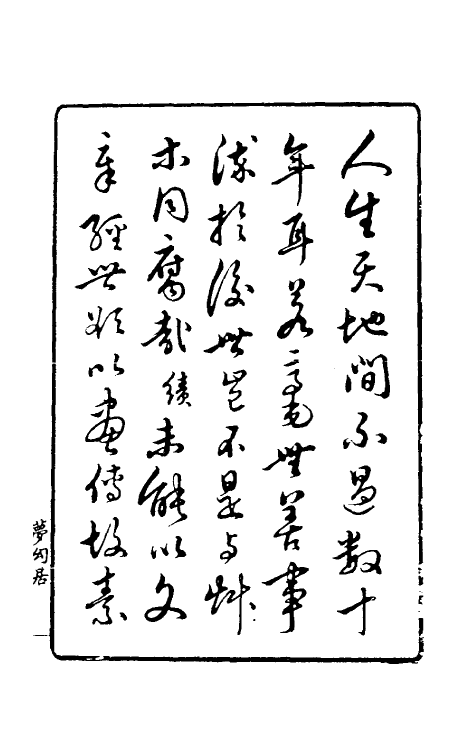 人生天地間不過數十
年耳若一毫無善事
流於後世豈不是与草
木同腐哉績未能以文
章經世願以畫傳故素
夢幻居
一